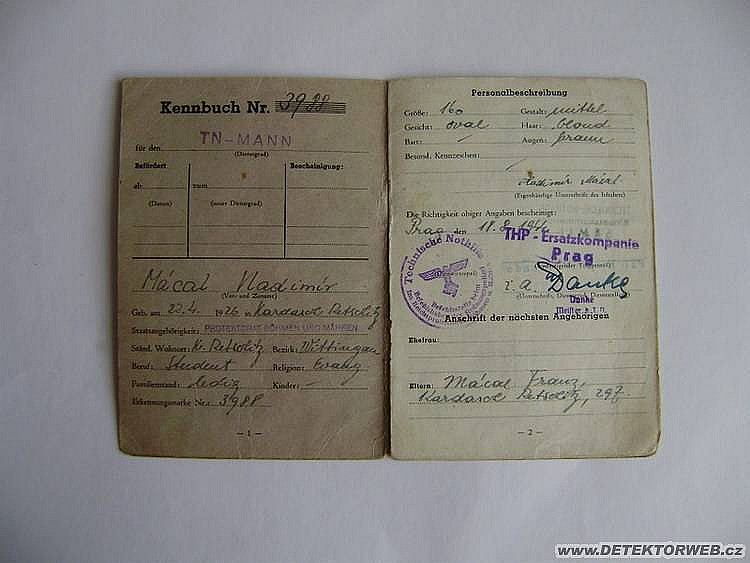 Kennbuch Nr. 3988
für den TN-MANN
(Dienstgrad)
Befördert
Bescheinigung:
ab zum
(Datum) (neuer Dienstgrad)
Mácal Vladimir
(Vor- und Zuname)
Geb. am 22.4. 1926 in Kardasch Retschitz
Staatsangehörigkeit: PROTEKTORAT BÖHMEN UND MÄHREN
Ständ. Wohnort: K. Retschitz Bezirk: Wittingau
Beruf: Student Religion: Evang
Familienstand: ledig Kinder: —
Erkennungsmarke Nr.: 3988
— 1 —
Personalbeschreibung
Größe: 160 Gestalt: mittel
Gesicht: oval Haar: blond
Bart: / Augen: braun
Besond. Kennzeichen: /
Vladimír Mácal
(Eigenhändige Unterschrift des Inhabers)
Die Richtigkeit obiger Angaben bescheinigt:
Prag den 18.8.1944
THP - Ersatzkompanie
Prag
Technische Nothilfe
Danke
Danke
Meister d.T.N.
Anschrift der nächsten Angehörigen
Ehefrau:
Eltern: Mácal Franz,
Kardasch Retschitz, 297.
— 2 —
www.DETEKTORWEB.cz